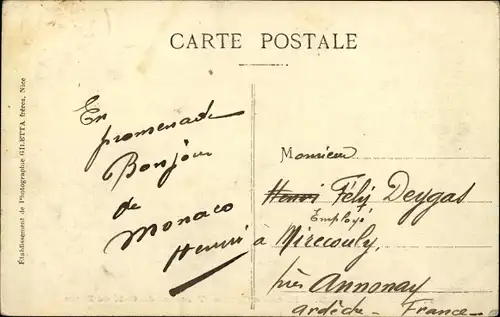 CARTE POSTALE
Établissement de Photographie GILETTA frères, Nice
En
promenade
Bonjour
de
Monaco
Henri
Monsieur
Henri Félix Deygas
Employé
à Mirecouly,
près Annonay
ardèche - France -